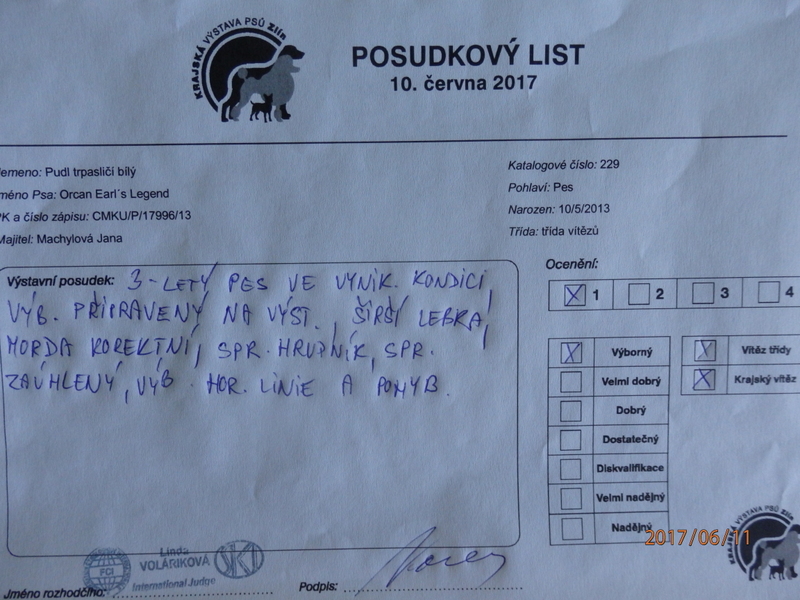 KRAJSKÁ VÝSTAVA PSŮ Zlín
POSUDKOVÝ LIST
10. června 2017
lemeno: Pudl trpasličí bílý
méno Psa: Orcan Earl´s Legend
PK a číslo zápisu: CMKU/P/17996/13
Majitel: Machylová Jana
Katalogové číslo: 229
Pohlaví: Pes
Narozen: 10/5/2013
Třída: třída vítězů
Výstavní posudek: 3-LETÝ PES VE VYNIK. KONDICI,
VÝB. PŘIPRAVENÝ NA VÝST. ŠIRŠÍ LEBKA,
MORDA KOREKTNÍ, SPR. HRUDNÍK, SPR.
ZAÚHLENÝ, VÝB. HOR. LINIE A POHYB.
Ocenění:
X 1 2 3 4
X Výborný
Velmi dobrý
Dobrý
Dostatečný
Diskvalifikace
Velmi nadějný
Nadějný
X Vítěz třídy
X Krajský vítěz
2017/06/11
KRAJSKÁ VÝSTAVA PSŮ Zlín
FCI
Linda
VOLÁRIKOVÁ
International Judge
SKJ
Jméno rozhodčího:
Podpis: